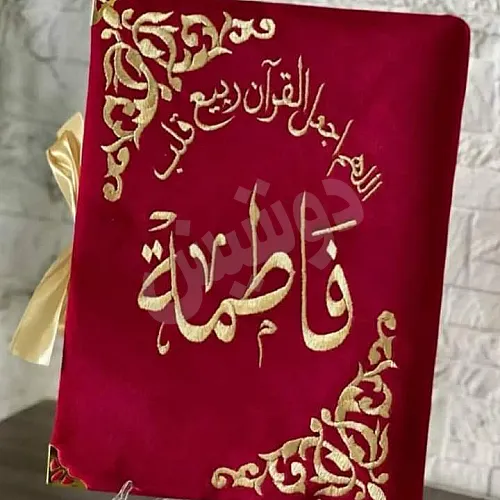 اللهم اجعل القرآن ربيع قلب
فَاطِمَة
دوشيزن